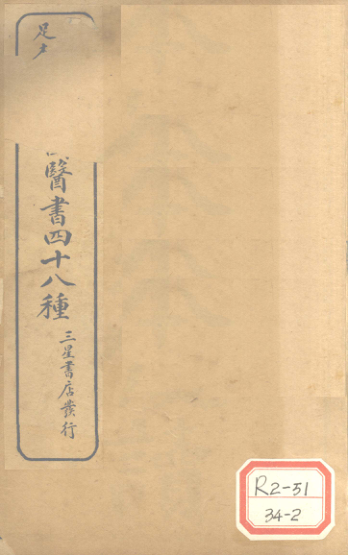 足
醫書四十八種
三星書店發行
R2-51
34-2